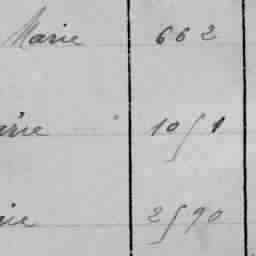 Marie 662
rie 1051
ie 2590